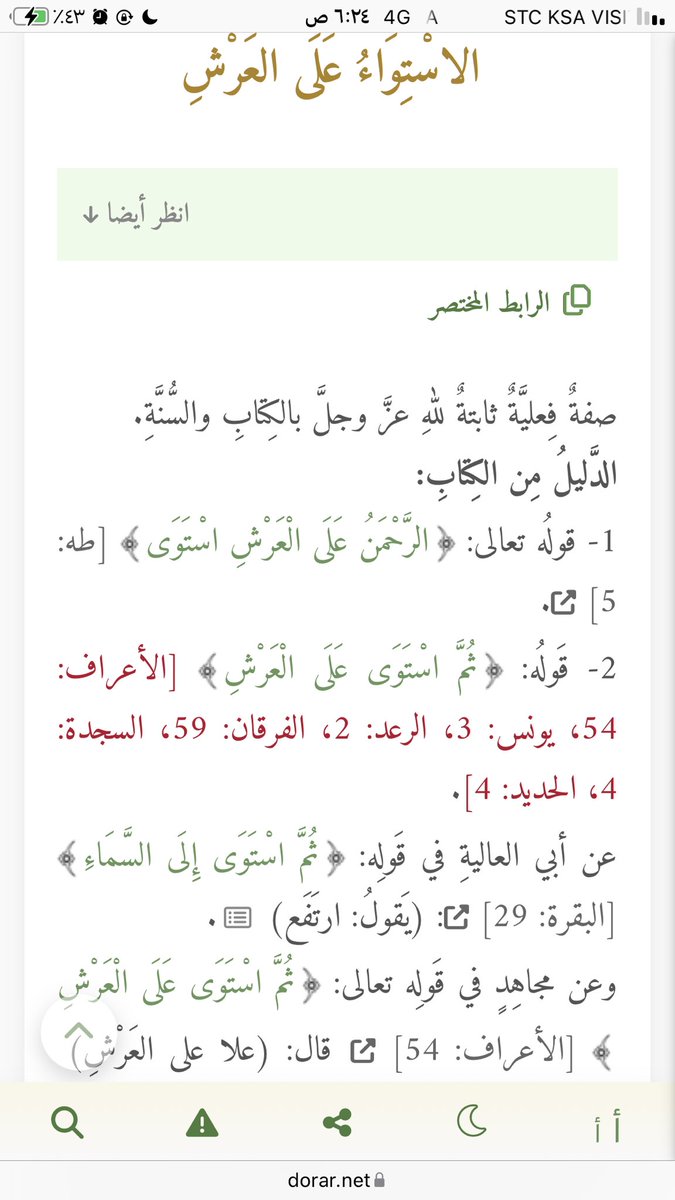 ٪٤٣ ٦:٢٤ ص 4G A STC KSA VISI
الاسْتِوَاءُ عَلَى العَرْشِ
انظر أيضا ↓
الرابط المختصر
صفةٌ فِعليَّةٌ ثابتةٌ للهِ عزَّ وجلَّ بالكِتابِ والسُّنَّةِ.
الدَّليلُ مِن الكِتابِ:
1- قولُه تعالى: ﴿الرَّحْمَنُ عَلَى الْعَرْشِ اسْتَوَى﴾ [طه:
5].
2- قَولُه: ﴿ثُمَّ اسْتَوَى عَلَى الْعَرْشِ﴾ [الأعراف:
54، يونس: 3، الرعد: 2، الفرقان: 59، السجدة:
4، الحديد: 4].
عن أبي العاليةِ في قَولِه: ﴿ثُمَّ اسْتَوَى إِلَى السَّمَاءِ﴾
[البقرة: 29]: (يَقولُ: ارتَفَع).
وعن مجاهِدٍ في قَولِه تعالى: ﴿ثُمَّ اسْتَوَى عَلَى الْعَرْشِ
﴾ [الأعراف: 54] قال: (علا على العَرْشِ)
أ أ
dorar.net